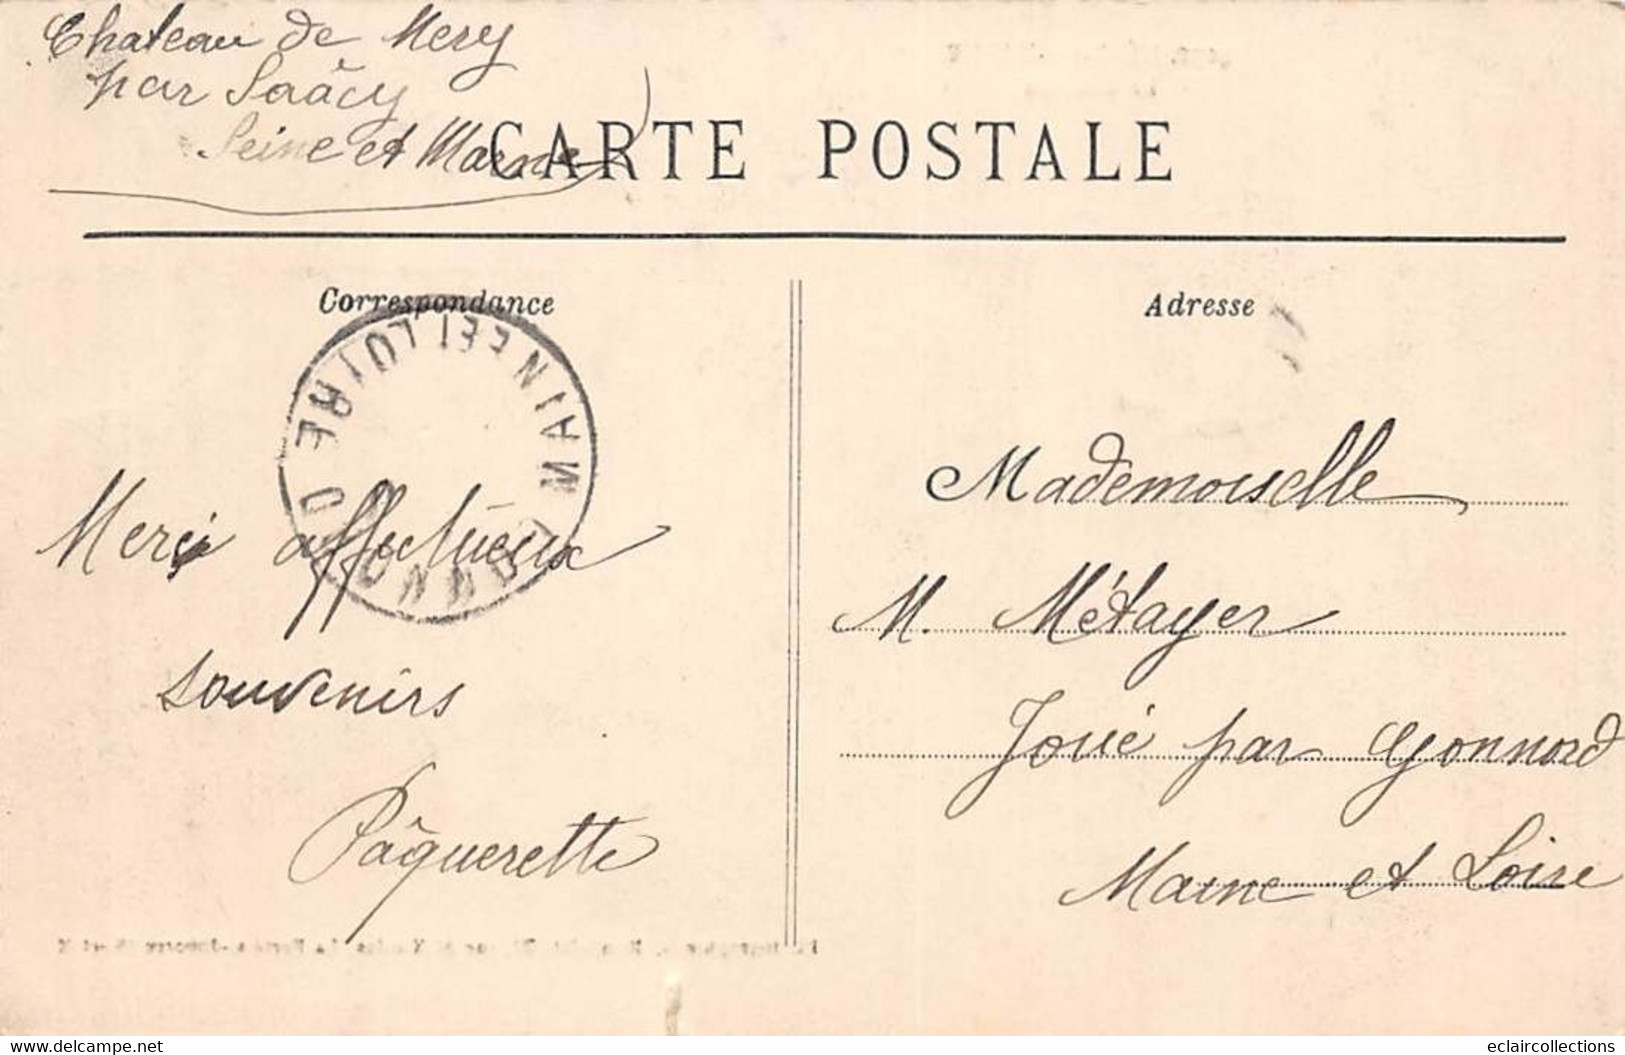 Chateau de Mery
par Saâcy
Seine et Marne
CARTE POSTALE
Correspondance
Adresse
MAINE ET LOIRE
GONNORD
Merci affectueux
souvenirs
Pâquerette
Mademoiselle
M. Métayer
Joué par Gonnord
Maine et Loire
www.delcampe.net
eclaircollections